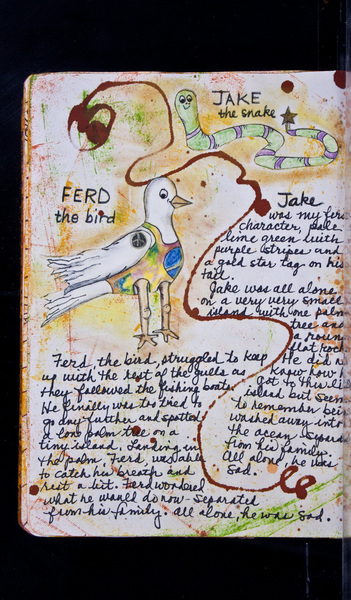 JAKE
the snake
FERD
the bird
Jake
was my firs
character, pale
lime green with
purple stripes and
a gold star tag on his
tail.
Jake was all alone
on a very very small
island with one palm
tree and
a roun
flat rock
He did n
know how
got to this li
island but seem
to remember bein
washed away into
the ocean separa
from his family.
All alone, he was
sad.
Ferd, the bird, struggled to keep
up with the rest of the gulls as
they followed the fishing boats.
He finally was too tired to
go any further and spotted
a lone palm tree on a
tiny island. Landing in
the palm, Ferd was able
to catch his breath and
rest a bit. Ferd wondered
what he would do now - separated
from his family. All alone, he was sad.